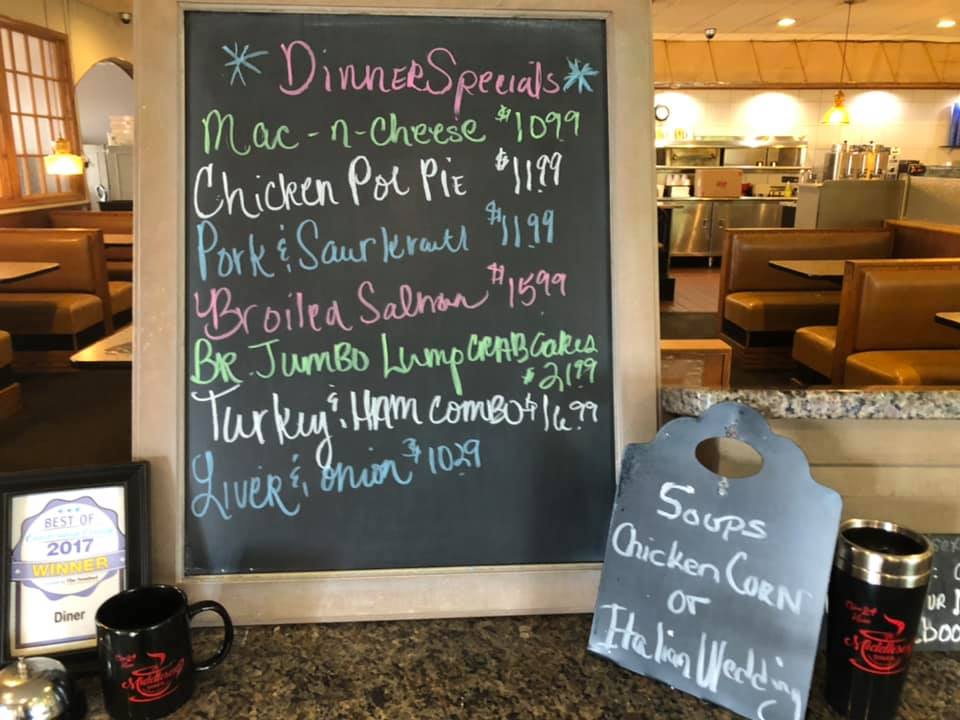 Dinner Specials
Mac-n-Cheese $10.99
Chicken Pot Pie $11.99
Pork & Saurkraut $11.99
Broiled Salmon $15.99
BR Jumbo Lump CRAB Cakes
$21.99
Turkey & HAM COMBO $16.99
Liver & onion $10.29
Soups
Chicken CORN
or
Italian Wedding
BEST OF
2017
WINNER
Diner
Middlesex
DINER
Middlesex
DINER